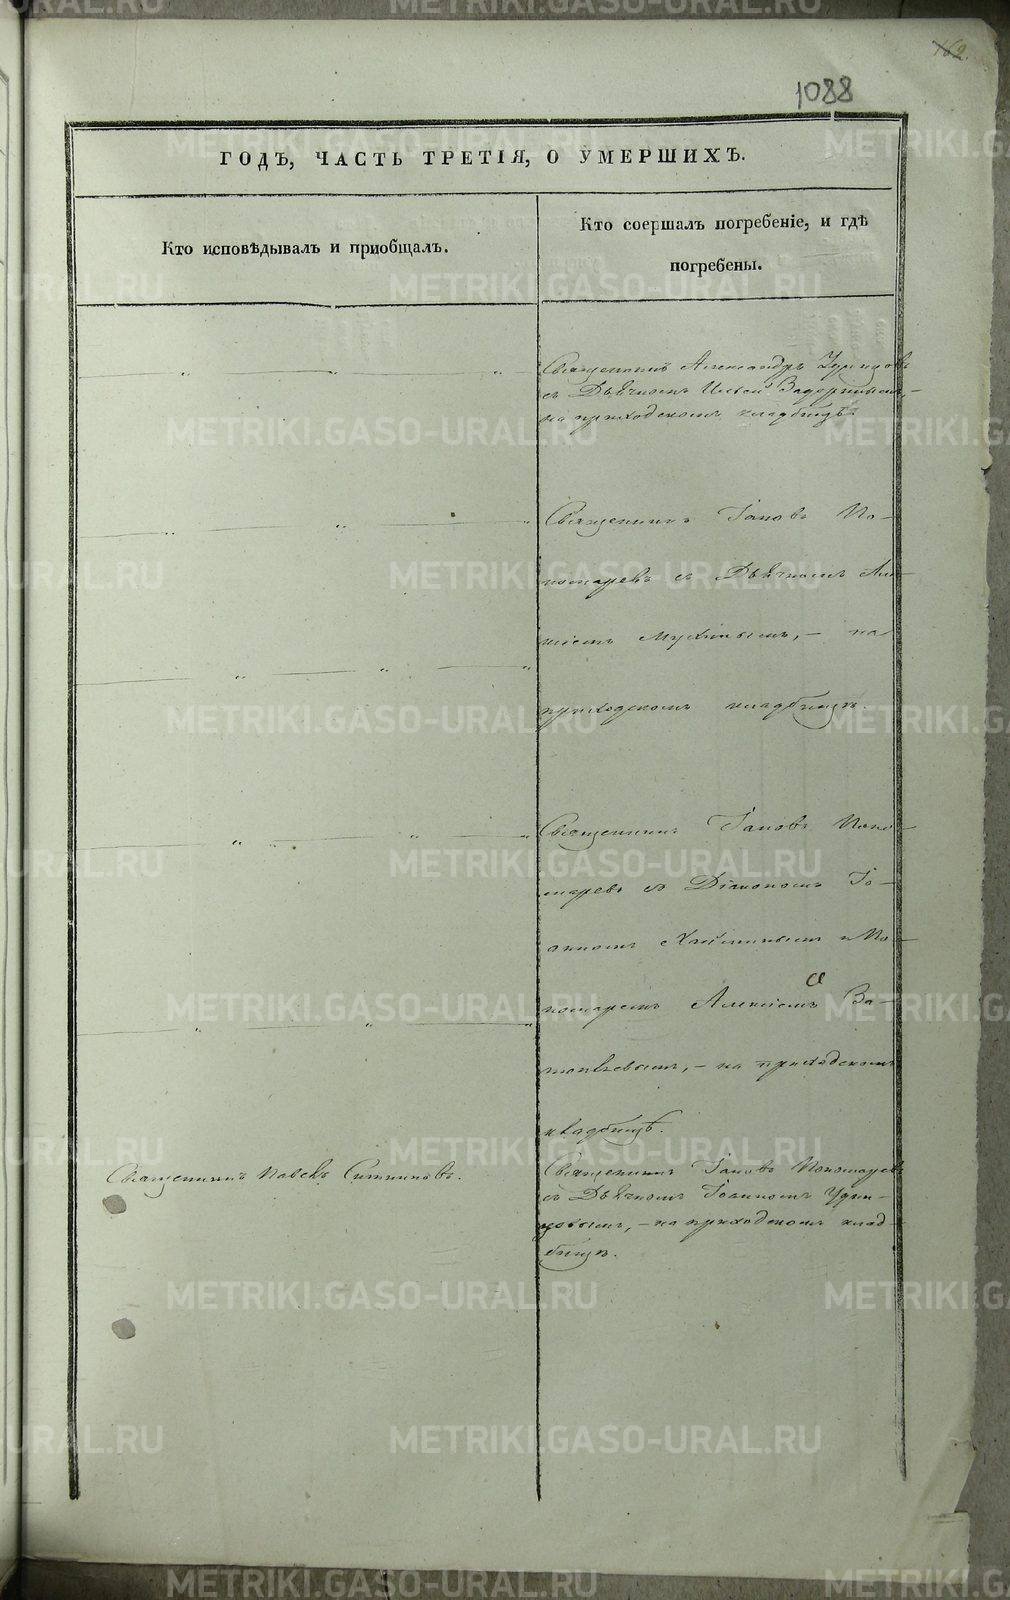 162
1088
ГОДЪ, ЧАСТЬ ТРЕТІЯ, О УМЕРШИХЪ.
Кто исповѣдывалъ и пріобщалъ.
Кто соершалъ погребеніе, и гдѣ
погребены.
Священникъ Александръ
съ Дьячкомъ Ильей
на приходскомъ кладбищѣ
Священникъ Іаковъ По-
номаревъ съ Дьячкомъ
Мухинымъ, – на
приходскомъ кладбищѣ.
Священникъ Іаковъ Поно-
маревъ съ Діакономъ Іо-
анномъ и По-
номаремъ Алексіемъ
– на приходскомъ
кладбищѣ.
Священникъ Павелъ Ситниковъ.
Священникъ Іаковъ Пономаревъ
съ Дьячкомъ Іоанномъ Удин-
цовымъ, – на приходскомъ клад-
бищѣ.
METRIKI.GASO-URAL.RU